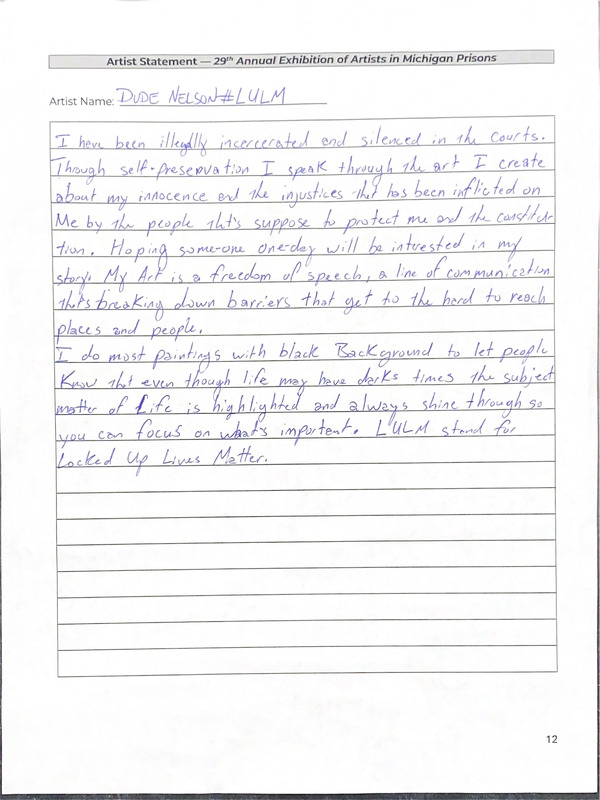 Artist Statement — 29th Annual Exhibition of Artists in Michigan Prisons
Artist Name: DUDE NELSON#LULM
I have been illegally incercerated and silenced in the courts.
Though self-preservation I speak through the art I create
about my innocence and the injustices that has been inflicted on
Me by the people that's suppose to protect me and the constitu-
tion. Hoping some-one one-day will be intrested in my
story. My Art is a freedom of speech, a line of communication
that's breaking down barriers that get to the hard to reach
places and people.
I do most paintings with black Background to let people
Know that even though life may have darks times the subject
matter of Life is highlighted and always shine through so
you can focus on what's important. LULM stand for
Locked Up Lives Matter.
12